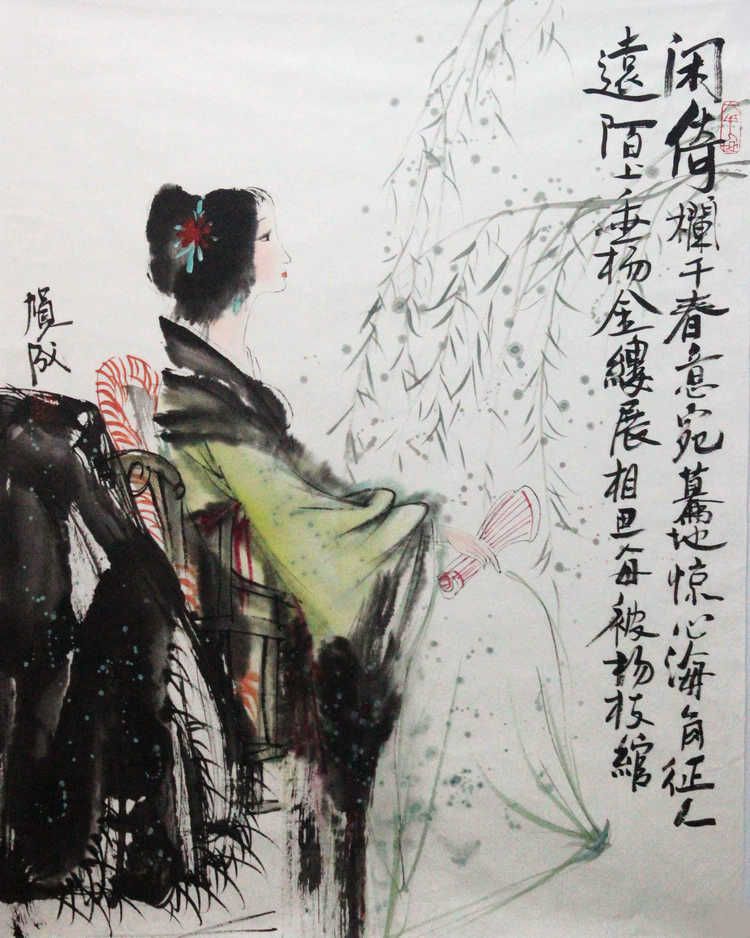 闲倚欄干春意宛驀地惊心海角征人
遠陌上垂杨金縷展相思每被杨枝綰
賀成